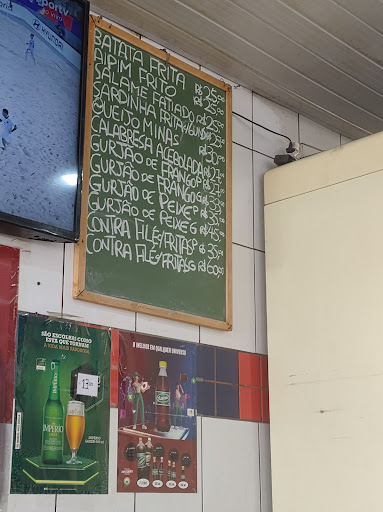 sportv
AO VIVO
HYUNDAI
BATATA FRITA R$ 25,00
AIPIM FRITO R$ 25,00
SALAME FATIADO R$ 25,00
SARDINHA FRITA
QUEIJO MINAS
CALABRESA ACEBOLADA
GURJÃO DE FRANGO P
GURJÃO DE FRANGO G
GURJÃO DE PEIXE P
GURJÃO DE PEIXE G R$ 45,00
CONTRA FILÉ/FRITAS P R$ 35,00
CONTRA FILÉ/FRITAS G R$ 60,00
SÃO ESCOLHAS COMO
ESTA QUE TORNAM
A VIDA MAIS SABOROSA.
IMPÉRIO
O MELHOR EM QUALQUER UNIVERSO